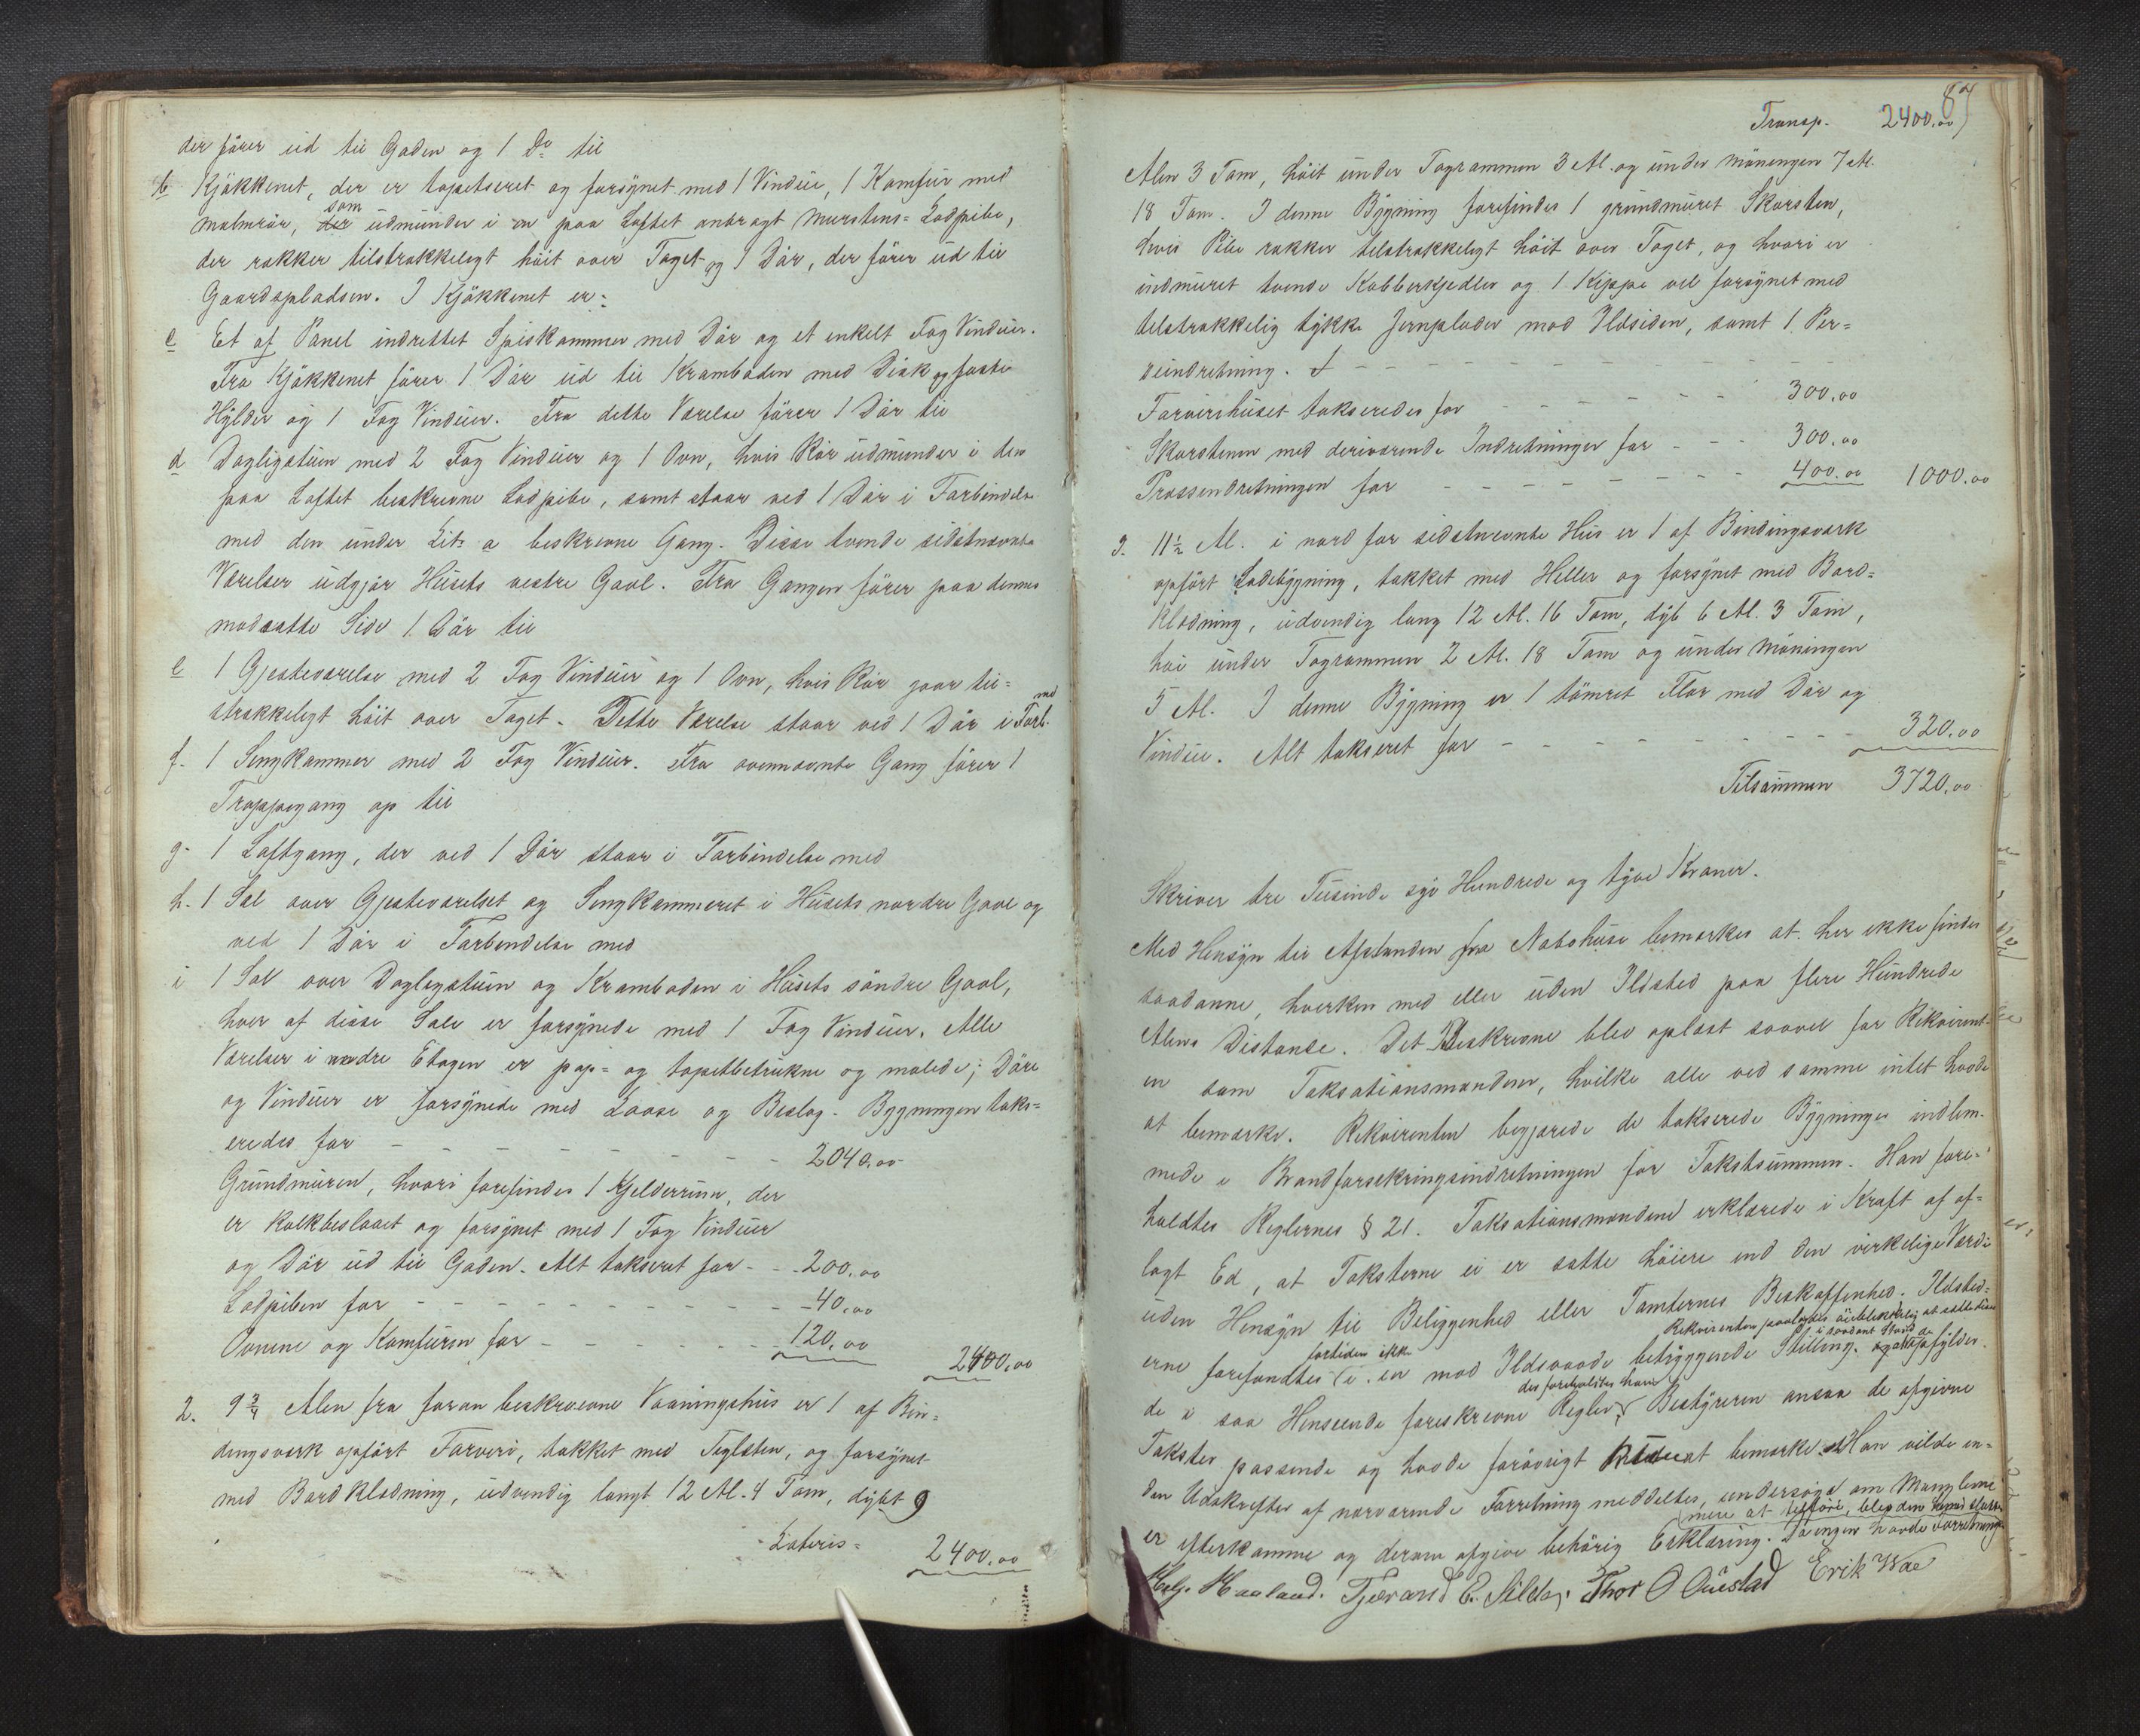 der fører ud til Gaden og 1 Do til
b Kjøkkenet, der er tapetseret og forsynet med 1 Vindue, 1 Komfur med
som
malmrør, der udmunder i en paa Loftet anbragt Murstens-Lodpibe,
der rækker tilstrækkeligt høit over Taget og 1 Dør, der fører ud til
Gaardspladsen. I Kjøkkenet er:
c Et af Panel indrettet Spiskammer med Dør og et enkelt Fag Vinduer.
Fra Kjøkkenet fører 1 Dør ud til Kramboden med Disk og faste
Hylder og 1 Fag Vinduer. Fra dette Værelse fører 1 Dør til
d Dagligstuen med 2 Fag Vinduer og 1 Ovn, hvis Rør udmunder i den
paa Loftet beskrevne Lodpibe, samt staar ved 1 Dør i Forbindelse
med den under Litr a beskrevne Gang. Disse tvende sidstnævnte
Værelser udgjør Husets vestre Gavl. Fra Gangen fører paa dennes
modsatte Side 1 Dør til
e 1 Gjesteværelse med 2 Fag Vinduer og 1 Ovn, hvis Rør gaar til-
strækkeligt høit over Taget. Dette Værelse staar ved 1 Dør i Forb. med
f. 1 Sengkammer med 2 Fag Vinduer. Fra ovennævnte Gang fører 1
Trappegang op til
g. 1 Loftgang, der ved 1 Dør staar i Forbindelse med
h. 1 Sal over Gjesteværelset og Sengkammeret i Husets nordre Gavl og
ved 1 Dør i Forbindelse med
i 1 Sal over Dagligstuen og Kramboden i Husets søndre Gavl,
hver af disse Sale er forsynede med 1 Fag Vinduer. Alle
Værelser i nedre Etagen er pap- og tapetbetrukne og malede; Døre
og Vinduer er forsynede med Laase og Beslag. Bygningen taks-
eredes for - - - - - - - 2040.00
Grundmuren, hvori forefindes 1 Kjelderrum, der
er kalkbeslaaet og forsynet med 1 Fag Vinduer
og Dør ud til Gaden. Alt takseret for - - 200.00
Lodpiben for - - - - - - - - - - 40.00
Ovnene og Komfuren for - - - - - - 120.00 2400.00
2. 9 3/4 Alen fra foran beskrevne Vaaningshus er 1 af Bin-
dingsværk opført Farveri, tækket med Teglsten, og forsynet
med Bordklædning, udvendig langt 12 Al. 4 Tom, dybt 9
Lateris = 2400.00
87
Transp. 2400.00
Alen 3 Tom, høit under Tagrammen 3 Al. og under Møningen 7 Al.
18 Tom. I denne Bygning forefindes 1 grundmuret Skorsten,
hvis Pibe rækker tilstrækkeligt høit over Taget, og hvori er
indmuret tvende Kobberkjedler og 1 Kyppe vel forsynet med
tilstrækkelig tykke Jernplader mod Ildsiden, samt 1 Per-
seindretning. - - - - - - -
Farverihuset takseredes for - - - - - - 300.00
Skorstenen med deriværende Indretninger for - - - 300.00
Pressendretningen for - - - - - - - 400.00 1000.00
3. 11 1/2 Al. i nord for sidstnevnte Hus er 1 af Bindingsværk
opført Ladebygning, tækket med Heller og forsynet med Bord-
klædning, udvendig lang 12 Al. 16 Tom, dyb 6 Al. 3 Tom,
høi under Tagrammen 2 Al. 18 Tom og under Møningen
5 Al. I denne Bygning er 1 tømret Flor med Dør og
Vindue. Alt takseret for - - - - - - - 320.00
Tilsammen 3720.00
Skriver tre Tusinde syv Hundrede og tyve Kroner.
Med Hensyn til Afstanden fra Nabohuse bemærkes at her ikke findes
saadanne, hverken med eller uden Ildsted paa flere Hundrede
Alens Distanse. Det Beskrevne blev oplæst saavel for Rekvirent-
en som Taksationsmændene, hvilke alle ved samme intet havde
at bemærke. Rekvirenten begjærede de takserede Bygninger indlem-
mede i Brandforsikringsindretningen for Takstsummen. Han fore-
holdtes Reglernes § 21. Taksationsmændene erklærede i Kraft af af-
lagt Ed, at Taksterne ei er satte høiere end den virkelige Værdi
uden Hensyn til Beliggenhed eller Tomternes Beskaffenhed. Ildsted-
Rekvirenten paalagdes øieblikkelig at sætte disse
fortiden ikke i saadant Stand
erne forefandtes i en mod Ildsvaade betryggende Stilling. og at de opfylder
des foreholdtes ham
de i saa Henseende foreskrevne Regler. Bestyreren ansaa de afgivne
Takster passende og havde forøvrigt intet at bemærke. Han vilde in-
den Udskrifter af nærværende Forretning meddeltes, undersøge om Manglerne
mere at tilføie, blev den hermed sluttet
er efterkomme og derom afgive behørig Erklæring. Da ingen havde Forretning
Helje Haaland. Tjerand E. Silda. Thor O Ouestad Erik Wae